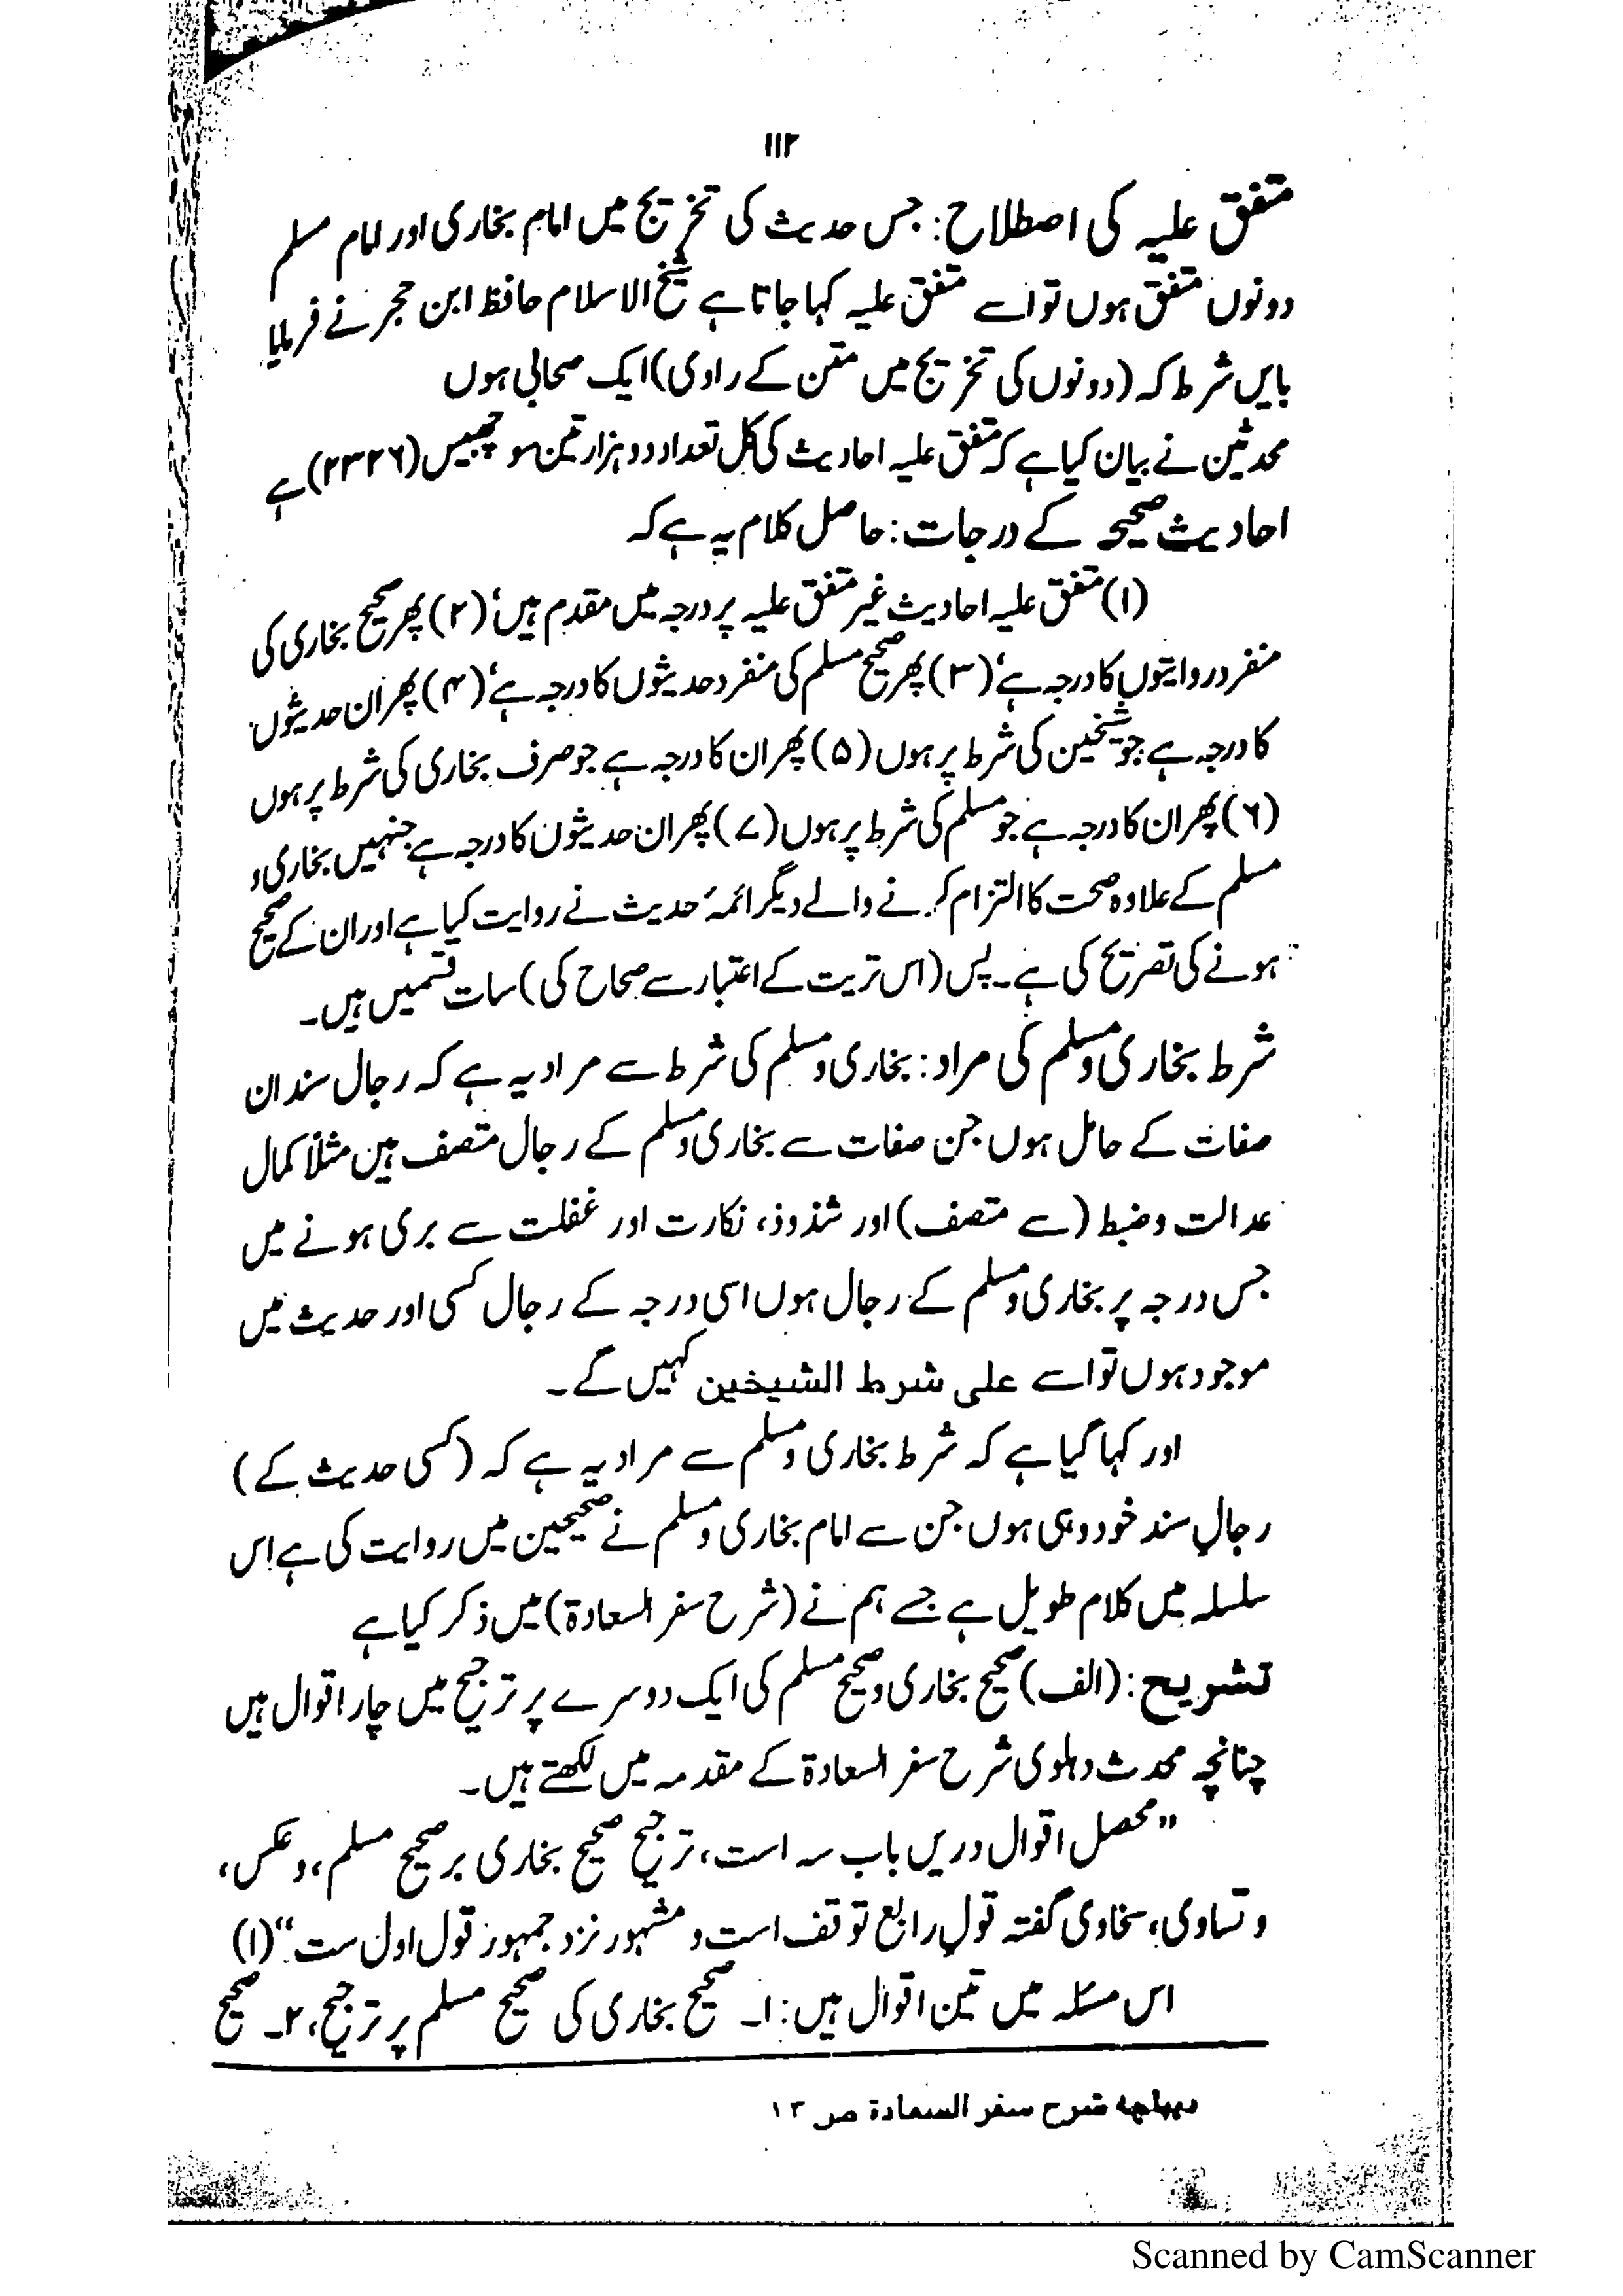 ۱۱۲
متفق علیہ کی اصطلاح: جس حدیث کی تخریج میں امام بخاری اور امام مسلم
دونوں متفق ہوں تو اسے متفق علیہ کہا جاتا ہے شیخ الاسلام حافظ ابن حجر نے فرمایا
بایں شرط کہ (دونوں کی تخریج میں متن کے راوی) ایک صحابی ہوں
محدثین نے بیان کیا ہے کہ متفق علیہ احادیث کی کل تعداد دو ہزار تین سو چھبیس (۲۳۲۶) ہے
احادیث صحیحہ کے درجات: حاصل کلام یہ ہے کہ
(۱) متفق علیہ احادیث غیر متفق علیہ پر درجہ میں مقدم ہیں، (۲) پھر صحیح بخاری کی
منفرد روایتوں کا درجہ ہے، (۳) پھر صحیح مسلم کی منفرد حدیثوں کا درجہ ہے، (۴) پھر ان حدیثوں
کا درجہ ہے جو شیخین کی شرط پر ہوں (۵) پھر ان کا درجہ ہے جو صرف بخاری کی شرط پر ہوں
(۶) پھر ان کا درجہ ہے جو مسلم کی شرط پر ہوں (۷) پھر ان حدیثوں کا درجہ ہے جنہیں بخاری و
مسلم کے علاوہ صحت کا التزام کرنے والے دیگر ائمۂ حدیث نے روایت کیا ہے اور ان کے صحیح
ہونے کی تصریح کی ہے۔ پس (اس تریت کے اعتبار سے صحاح کی) سات قسمیں ہیں۔
شرط بخاری و مسلم کی مراد: بخاری و مسلم کی شرط سے مراد یہ ہے کہ رجال سند ان
صفات کے حامل ہوں جن صفات سے بخاری و مسلم کے رجال متصف ہیں مثلاً کمال
عدالت و ضبط (سے متصف) اور شذوذ، نکارت اور غفلت سے بری ہونے میں
جس درجہ پر بخاری و مسلم کے رجال ہوں اسی درجہ کے رجال کسی اور حدیث میں
موجود ہوں تو اسے علی شرط الشیخین کہیں گے۔
اور کہا گیا ہے کہ شرط بخاری و مسلم سے مراد یہ ہے کہ (کسی حدیث کے)
رجالِ سند خود وہی ہوں جن سے امام بخاری و مسلم نے صحیحین میں روایت کی ہے اس
سلسلہ میں کلام طویل ہے جسے ہم نے (شرح سفر السعادۃ) میں ذکر کیا ہے
تشریح: (الف) صحیح بخاری و صحیح مسلم کی ایک دوسرے پر ترجیح میں چار اقوال ہیں
چنانچہ محدث دہلوی شرح سفر السعادۃ کے مقدمہ میں لکھتے ہیں۔
”محصل اقوال دریں باب سہ است، ترجیح صحیح بخاری بر صحیح مسلم، و عکس،
و تساوی، سخاوی گفتہ قولِ رابع توقف است و مشہور نزد جمہور قول اول ست“ (۱)
اس مسئلہ میں تین اقوال ہیں: ۱۔ صحیح بخاری کی صحیح مسلم پر ترجیح، ۲۔ صحیح
دیباچہ شرح سفر السعادة ص ۱۳
Scanned by CamScanner